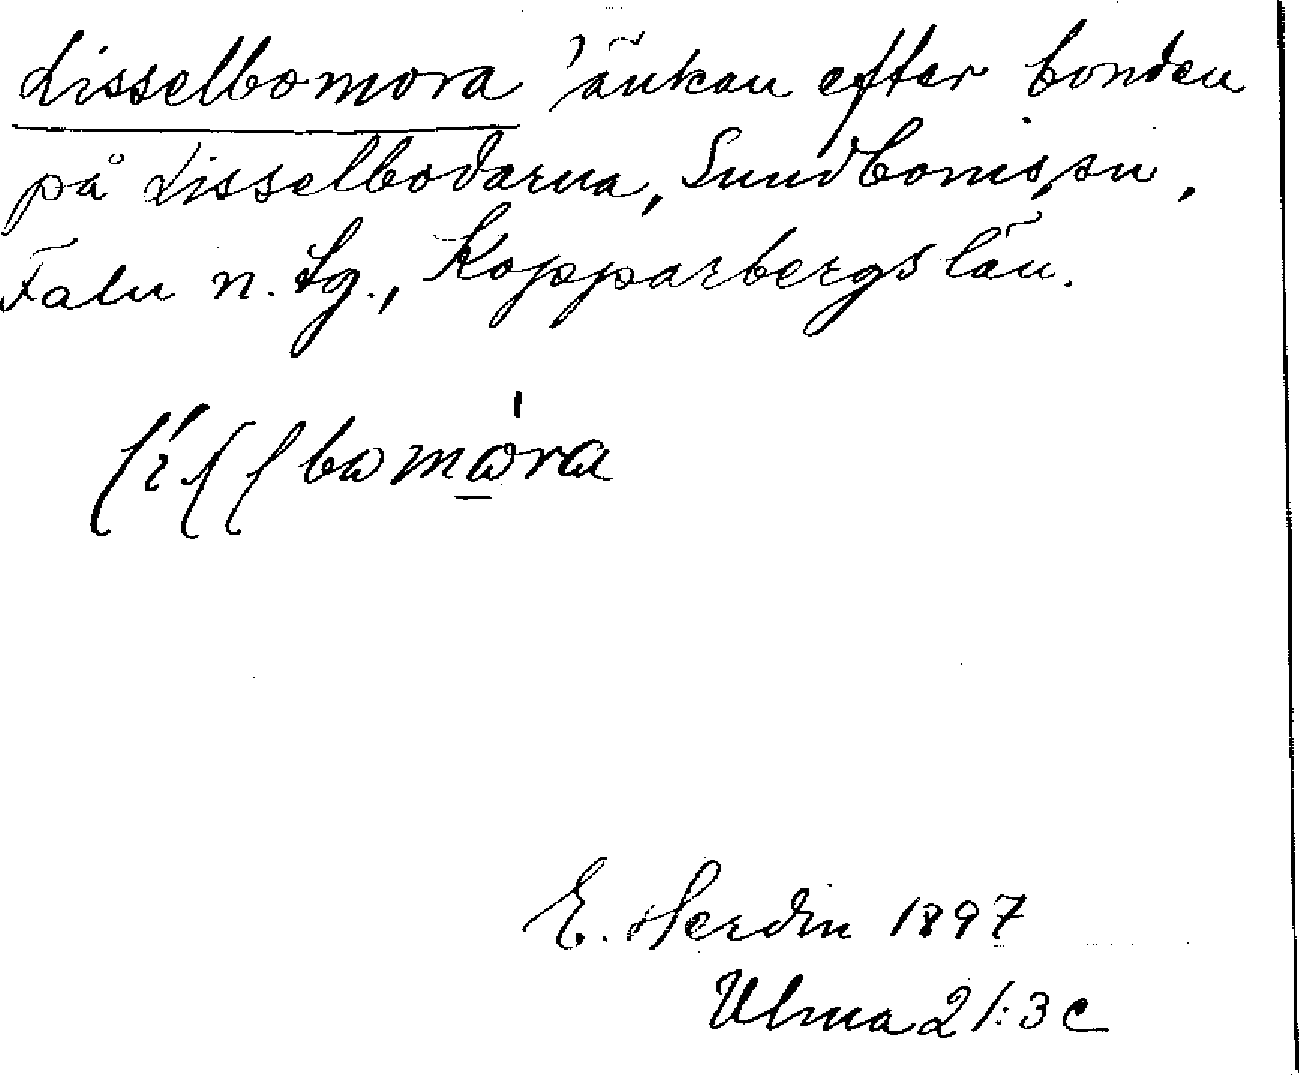 Lisselbomora 'änkan efter bonden
på Lisselbodarna, Sundborns sn,
Falu n. tg., Kopparbergs län.
E. Herdin 1897
Ulma 21:3c